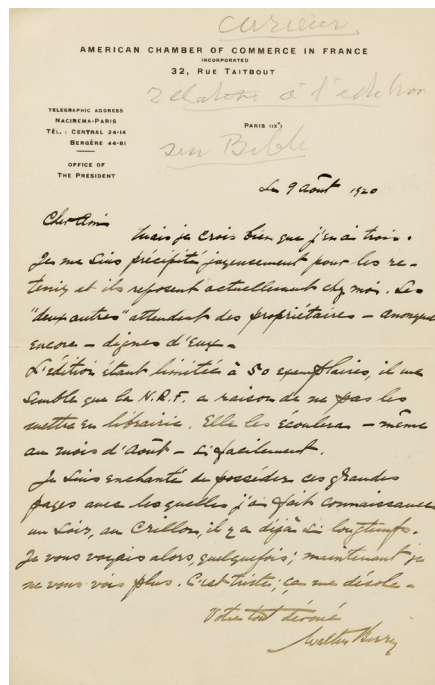 curieux
AMERICAN CHAMBER OF COMMERCE IN FRANCE
INCORPORATED
32, RUE TAITBOUT
relative à l'édition
TELEGRAPHIC ADDRESS
NACINEMA-PARIS
TÉL. : CENTRAL 24-14
BERGÈRE 44-81
PARIS (IXe)
sur Bible
OFFICE OF
THE PRESIDENT
Le 9 août 1920
Cher Ami
Mais je crois bien que j'en ai trois.
Je me suis précipité joyeusement pour les re-
tenir et ils reposent actuellement chez moi. Les
"deux autres" attendent des propriétaires - anonymes
encore - dignes d'Eux -
L'édition étant limitée à 50 exemplaires, il me
semble que la N.R.F. a raison de ne pas les
mettre en librairie. Elle les écoulera - même
au mois d'Août - si facilement.
Je suis enchanté de posséder ces grandes
pages avec lesquelles j'ai fait connaissance
un soir, au Crillon, il y a déjà si longtemps.
Je vous voyais alors, quelquefois; maintenant je
ne vous vois plus. C'est triste; ça me désole -
Votre tout dévoué
Walter Berry